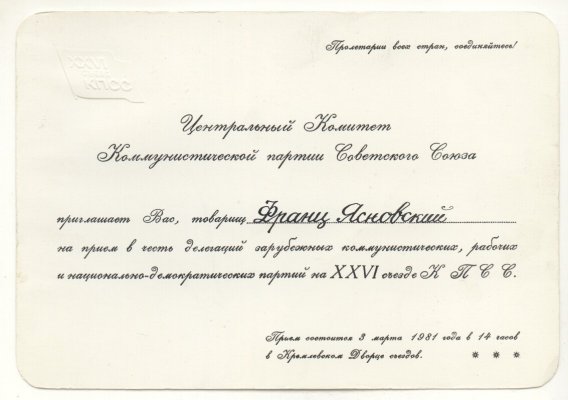 XXVI
СЪЕЗД
КПСС
Пролетарии всех стран, соединяйтесь!
Центральный Комитет
Коммунистической партии Советского Союза
приглашает Вас, товарищ Франц Ясновский
на прием в честь делегаций зарубежных коммунистических, рабочих
и национально-демократических партий на XXVI съезде К П С С.
Прием состоится 3 марта 1981 года в 14 часов
в Кремлевском Дворце съездов. * * *